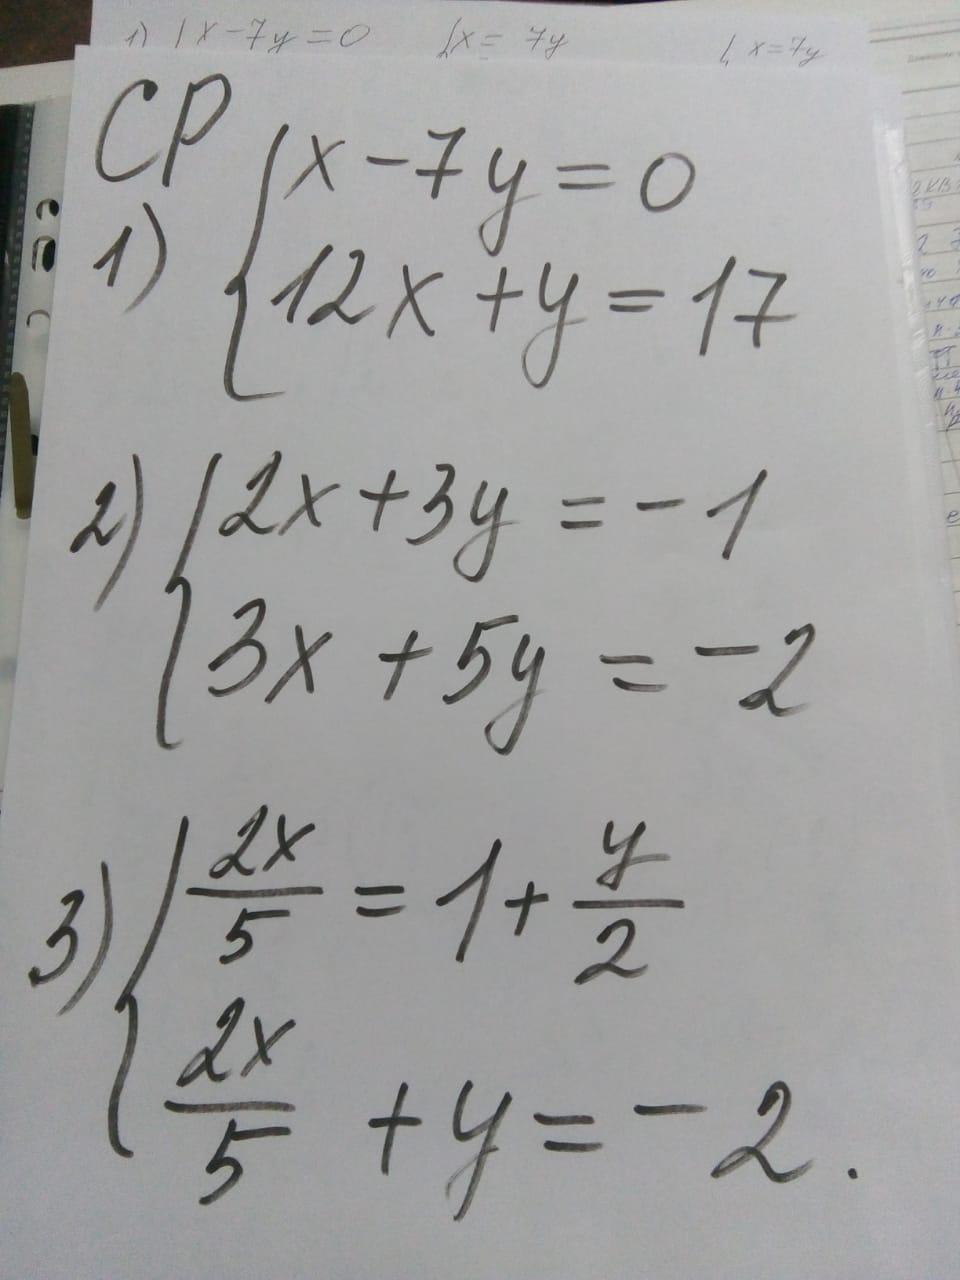 1) { x-7y=0 { x= 7y { x=7y
СР
1) { x-7y=0
12x+y=17
2) { 2x+3y=-1
3x+5y=-2
3) { 2x/5=1+y/2
2x/5+y=-2.